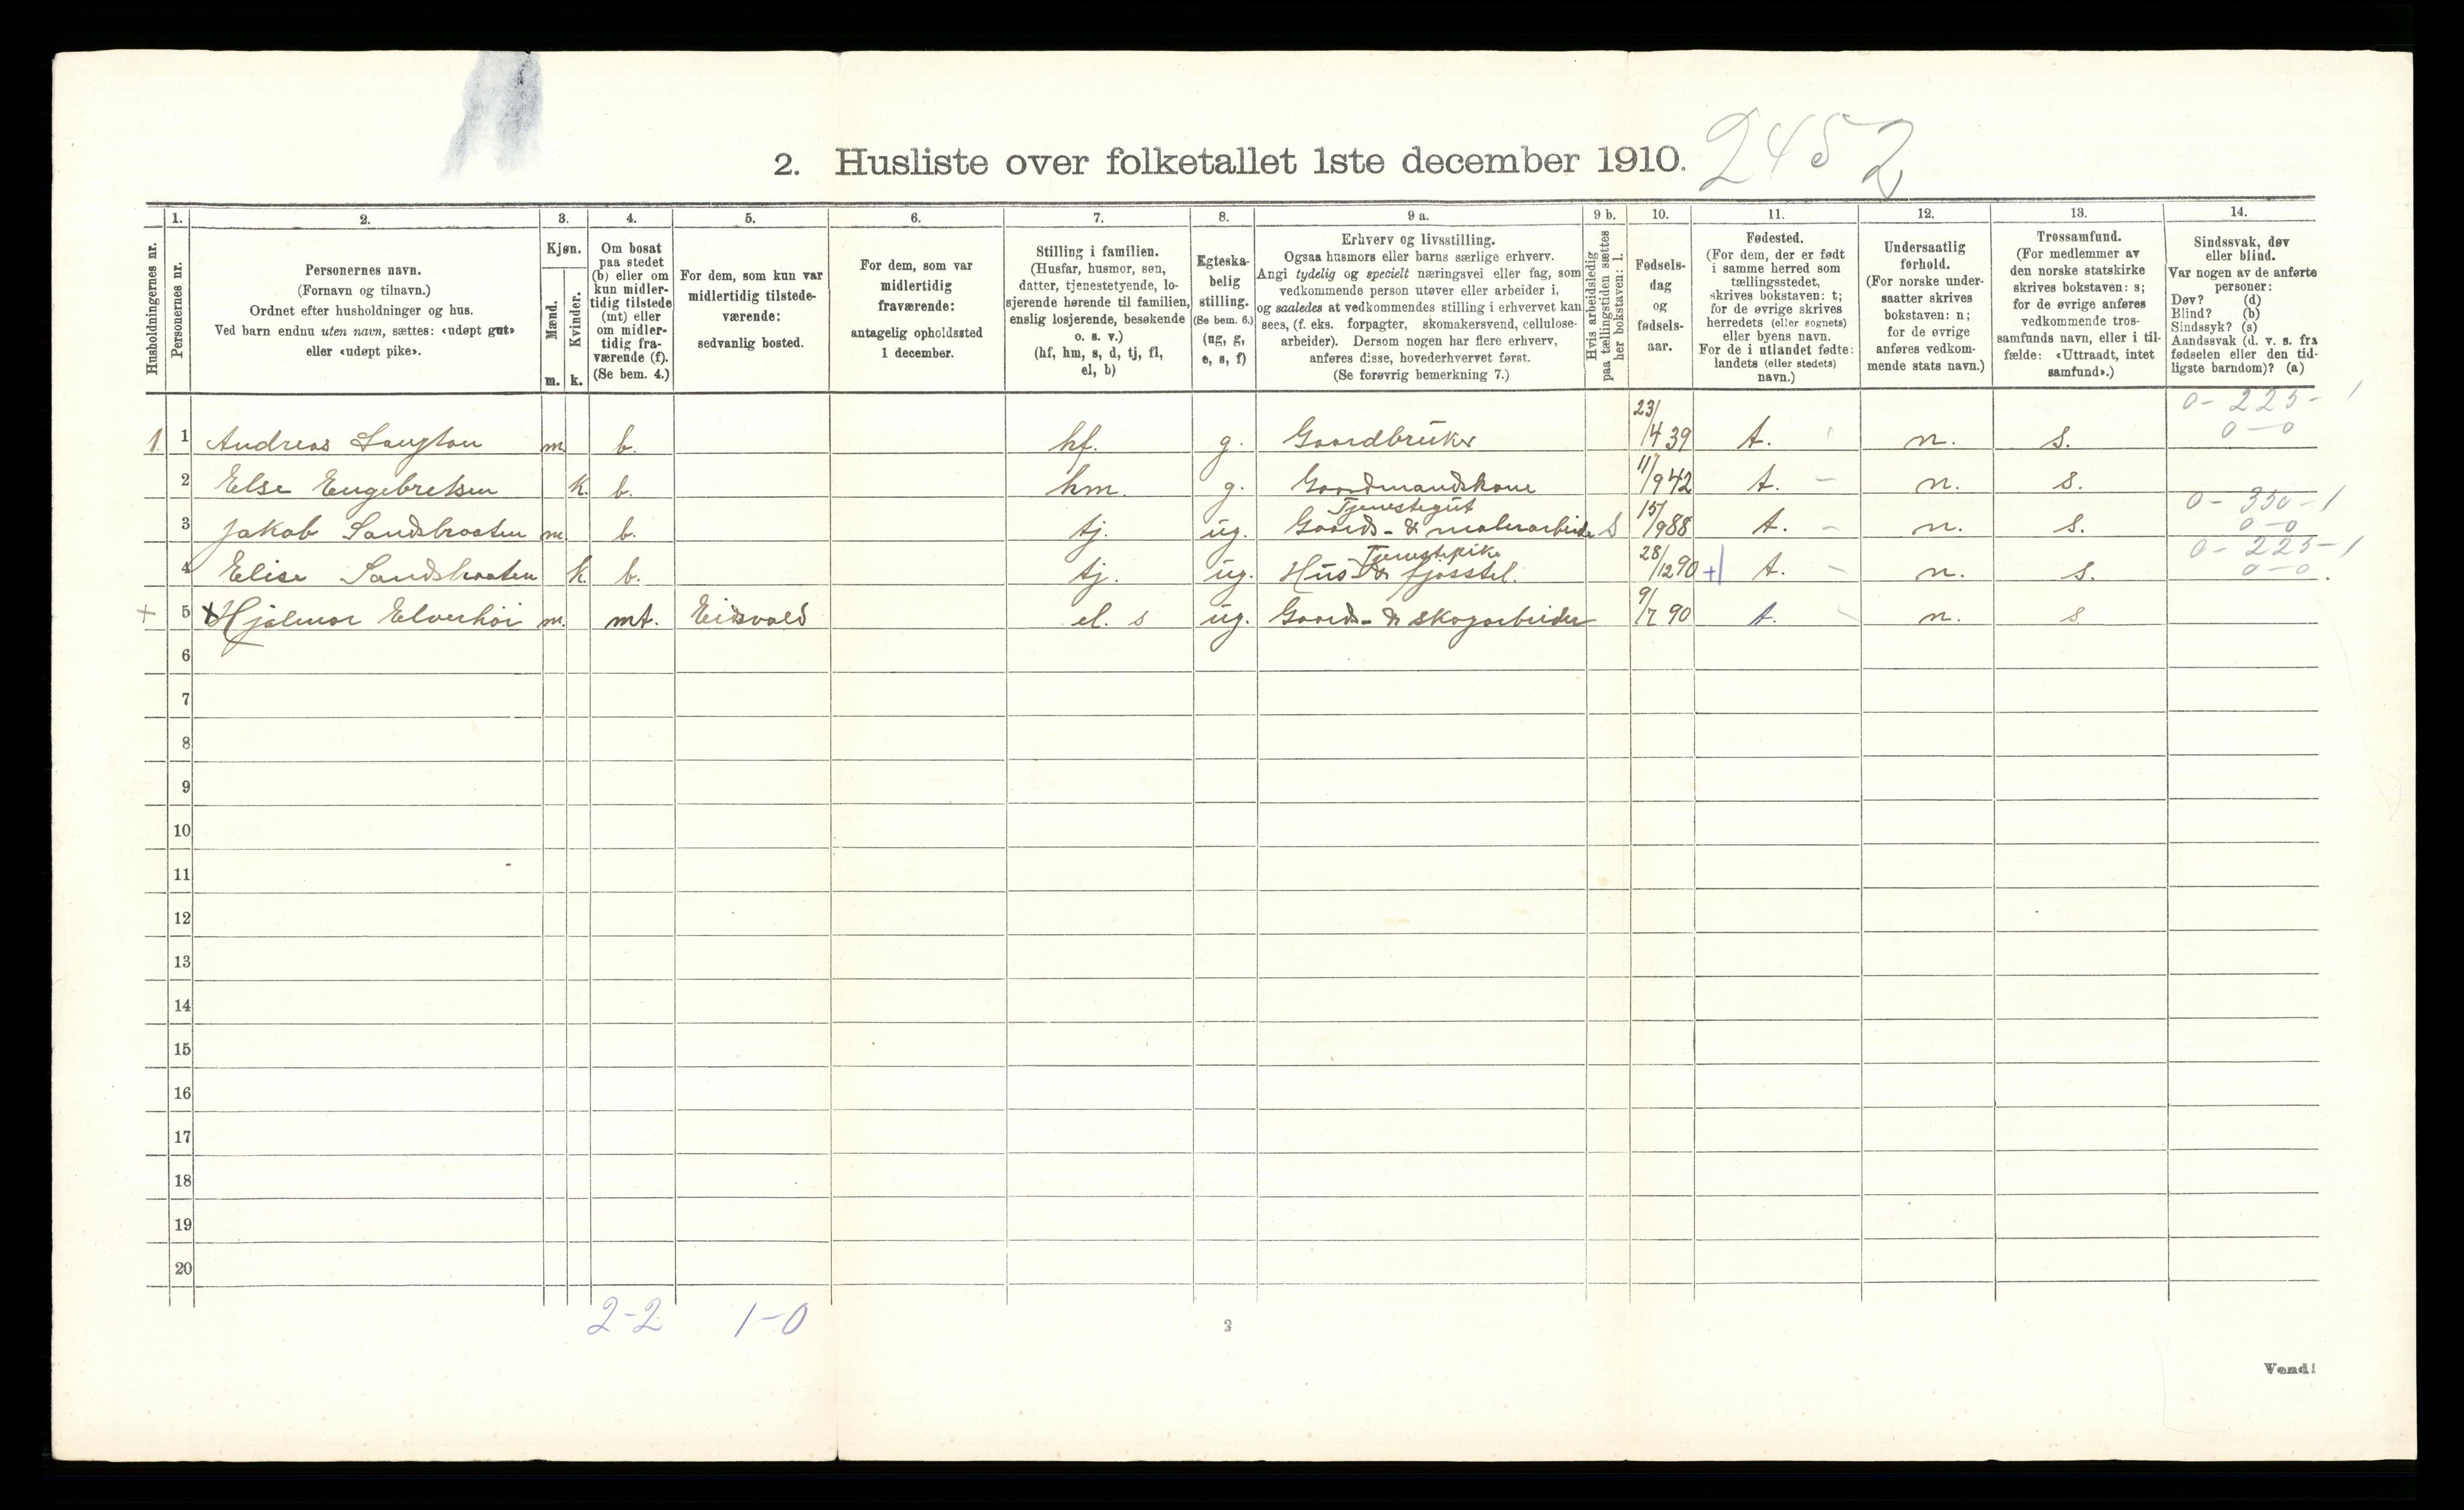 2. Husliste over folketallet 1ste december 1910. 2452
1. 2. 3. 4. 5. 6. 7. 8. 9 a. 9 b. 10. 11. 12. 13. 14.
Husholdningernes nr.
Personernes nr.
Personernes navn.
(Fornavn og tilnavn.)
Ordnet efter husholdninger og hus.
Ved barn endnu uten navn, sættes: «udøpt gut»
eller «udøpt pike».
Kjøn.
Mænd.
Kvinder.
m. k.
Om bosat
paa stedet
(b) eller om
kun midler-
tidig tilstede
(mt) eller
om midler-
tidig fra-
værende (f).
(Se bem. 4.)
For dem, som kun var
midlertidig tilstede-
værende:
sedvanlig bosted.
For dem, som var
midlertidig
fraværende:
antagelig opholdssted
1 december.
Stilling i familien.
(Husfar, husmor, søn,
datter, tjenestetyende, lo-
sjerende hørende til familien,
enslig losjerende, besøkende
o. s. v.)
(hf, hm, s, d, tj, fl,
el, b)
Egteska-
belig
stilling.
(Se bem. 6.)
(ug, g,
e, s, f)
Erhverv og livsstilling.
Ogsaa husmors eller barns særlige erhverv.
Angi tydelig og specielt næringsvei eller fag, som
vedkommende person utøver eller arbeider i,
og saaledes at vedkommendes stilling i erhvervet kan
sees, (f. eks. forpagter, skomakersvend, cellulose-
arbeider). Dersom nogen har flere erhverv,
anføres disse, hovederhvervet først.
(Se forøvrig bemerkning 7.)
Hvis arbeidsledig
paa tællingstiden sættes
her bokstaven: l.
Fødsels-
dag
og
fødsels-
aar.
Fødested.
(For dem, der er født
i samme herred som
tællingsstedet,
skrives bokstaven: t;
for de øvrige skrives
herredets (eller sognets)
eller byens navn.
For de i utlandet fødte:
landets (eller stedets)
navn.)
Undersaatlig
forhold.
(For norske under-
saatter skrives
bokstaven: n;
for de øvrige
anføres vedkom-
mende stats navn.)
Trossamfund.
(For medlemmer av
den norske statskirke
skrives bokstaven: s;
for de øvrige anføres
vedkommende tros-
samfunds navn, eller i til-
fælde: «Uttraadt, intet
samfund».)
Sindssvak, døv
eller blind.
Var nogen av de anførte
personer:
Døv? (d)
Blind? (b)
Sindssyk? (s)
Aandssvak (d. v. s. fra
fødselen eller den tid-
ligste barndom)? (a)
0 - 225 - 1
0 - 0
1. 1 Andreas m. b. hf. g. Gaardbruker 23/4 39 t. n. s.
2 Else Engebretsen k. b. hm. g. Gaardmandskone 11/9 42 t. - n. s.
0 - 350 - 1
0 - 0
Tjenestegut
3 Jakob Sandbraaten m. b. tj. ug. Gaards- & malerarbeide s 15/9 88 t. - n. s.
0 - 225 - 1
0 - 0
Tjenestepike
4 Elise Sandbraaten k. b. tj. ug. Hus- & fjøsstel. 28/12 90 + t. - n. s.
+ 5 x Hjalmar Elverhøi m. mt. Eidsvold el. s ug. Gaards- & skogarbeider 9/7 90 t. n. s
6
7
8
9
10
11
12
13
14
15
16
17
18
19
20
2-2 1-0
2
Vend!